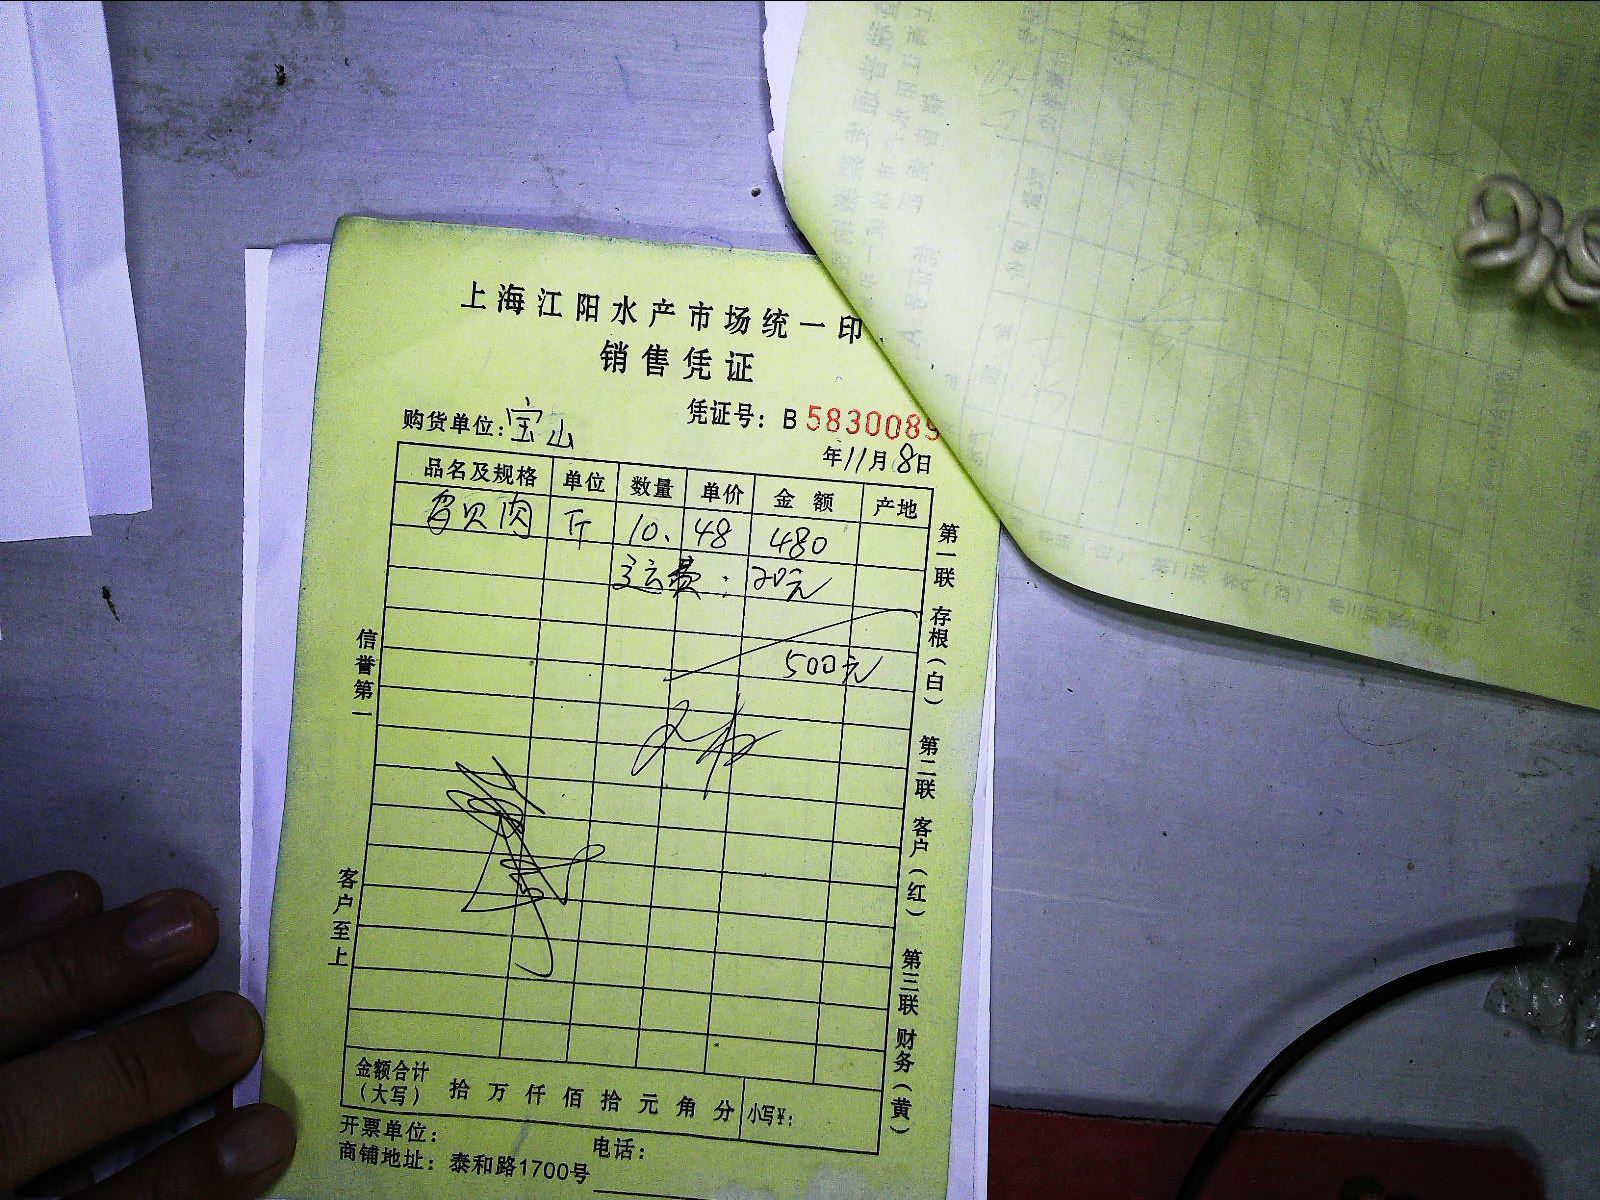 上海江阳水产市场统一印
销售凭证
凭证号：B 5830089
购货单位：宝山
年11月8日
品名及规格 单位 数量 单价 金额 产地
贝肉 斤 10. 48 480
运费：20元
500元
信誉第一
客户至上
第一联 存根（白） 第二联 客户（红） 第三联 财务（黄）
金额合计（大写） 拾 万 仟 佰 拾 元 角 分 小写¥：
开票单位： 电话：
商铺地址：泰和路1700号